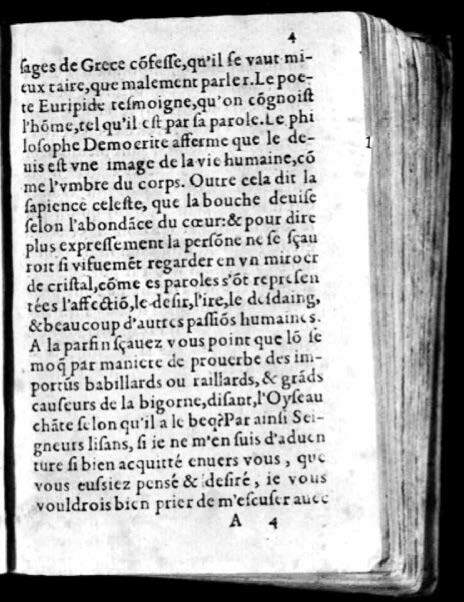 4
sages de Grece cõfesse,qu'il se vaut mi-
eux taire,que malement parler.Le poe-
te Euripide tesmoigne,qu'on cõgnoist
l'hõme,tel qu'il est par sa parole.Le phi
losophe Democrite afferme que le de-
uis est vne image de la vie humaine,cõ
me l'vmbre du corps. Outre cela dit la
sapience celeste, que la bouche deuise
selon l'abondãce du cœur:& pour dire
plus expressement la persõne ne se sçau
roit si vifuemẽt regarder en vn miroer
de cristal,cõme es paroles s'õt represen
tées l'affectiõ,le desir,l'ire,le desdaing,
&beaucoup d'autres passiõs humaines.
A la parfin sçauez vous point que lõ se
moq̃ par maniere de prouerbe des im-
portũs babillards ou raillards,& grãds
causeurs de la bigorne,disant,l'Oyseau
chãte selon qu'il a le beq?Par ainsi Sei-
gneurs lisans, si ie ne m'en suis d'aduen
ture si bien acquitté enuers vous , que
vous eussiez pensé & desiré , ie vous
vouldrois bien prier de m'escuser auec
A 4
1